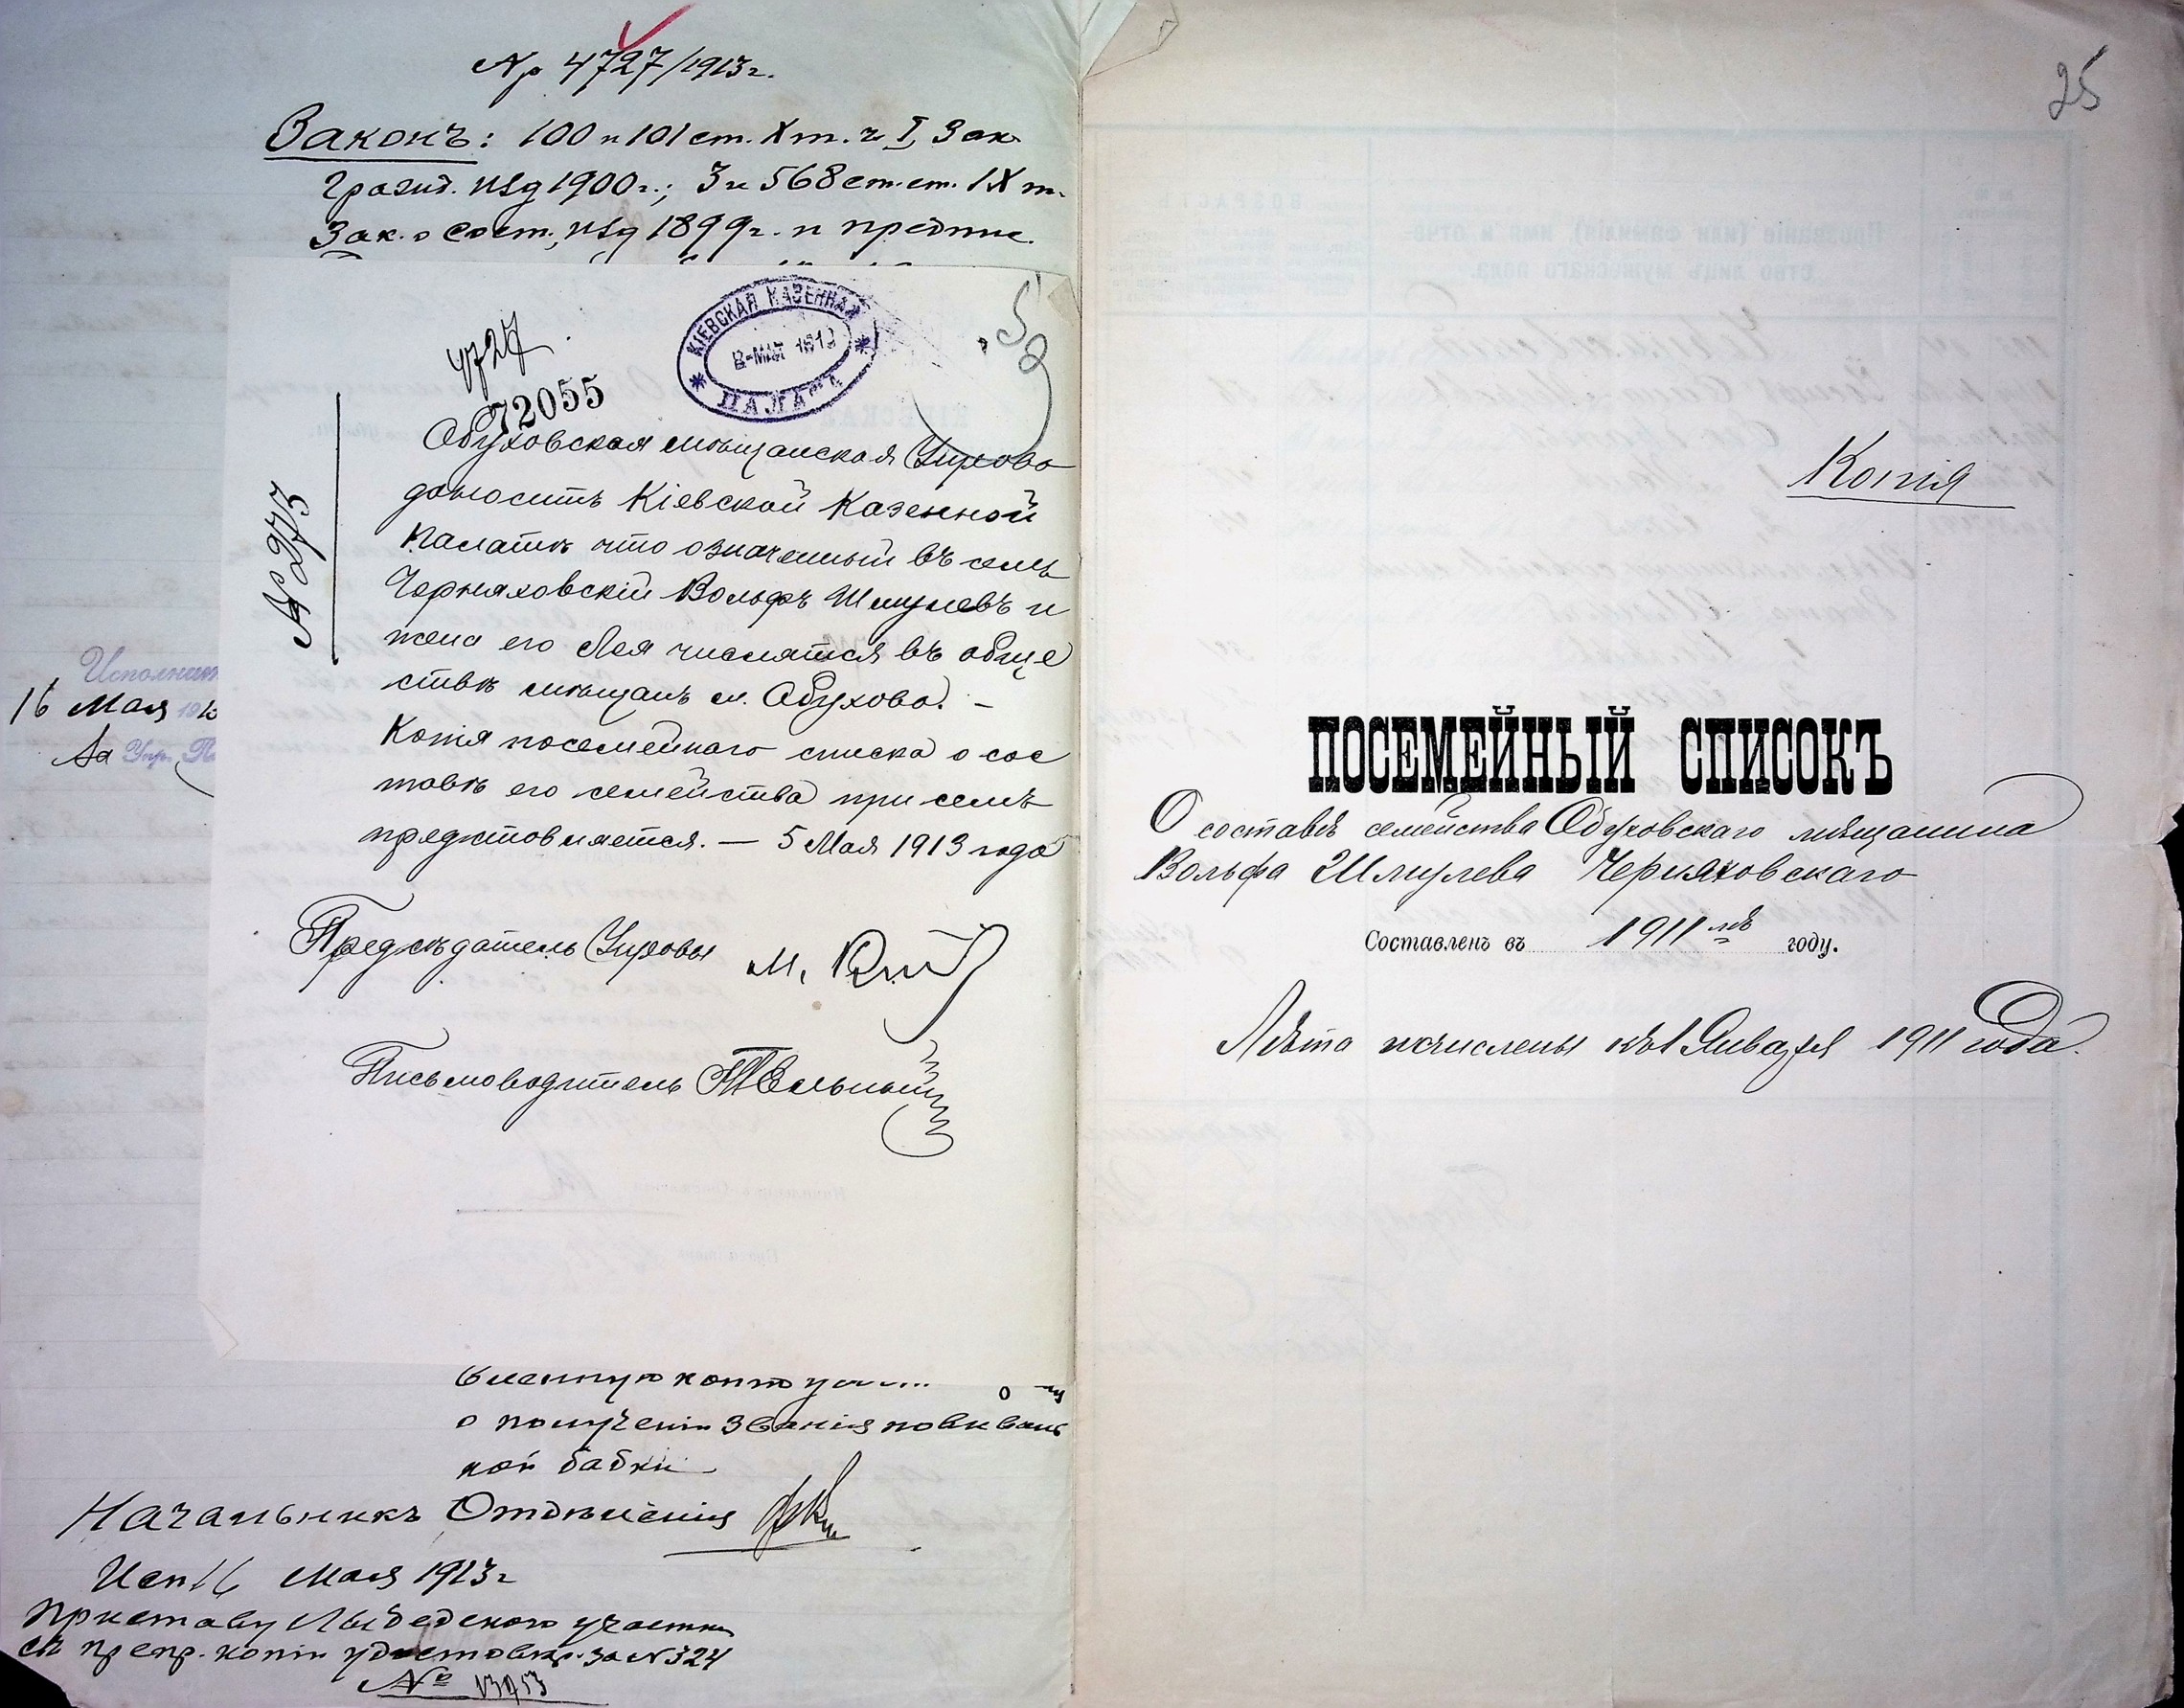 № 4727/1913г.
Законъ: 100 и 101 ст. X т. ч I, Зак.
Гражд. изд 1900г.; 3 и 568 ст. ст. IX т.
Зак. о Сост., изд 1899г. и предпис.
4727
72055
КІЕВСКАЯ КАЗЕННАЯ
8-МАЯ 1913
ПАЛАТА
52
№ 273
Обуховская мѣщанская Управа
доноситъ Кіевской Казенной
Палатѣ что означенный въ семъ
Черняховскій Вольфъ Шмулевъ и
жена его Лея числятся въ обще
ствѣ мѣщанъ м. Обухова. –
Копія посемейнаго списка о сос
тавѣ его семейства при семъ
предствовляется. — 5 Мая 1913 года
Предсѣдатель Управы М.
Письмоводитель
Исполнен
16 Мая 1913
За Упр. П
о полученіи званія повиваль
ной бабки
Начальникъ Отдѣленія
Исп 16 Мая 1913г
Приставу Лыбедского участка
съ препр. копіи удостовѣр. за № 324
№ 13953
25
Копія
ПОСЕМЕЙНЫЙ СПИСОКЪ
О составѣ семейства Обуховскаго мѣщанина
Вольфа Шмулева Черняховскаго
Составленъ въ 1911 мъ году.
Лѣта исчислены къ 1 Января 1911 года.